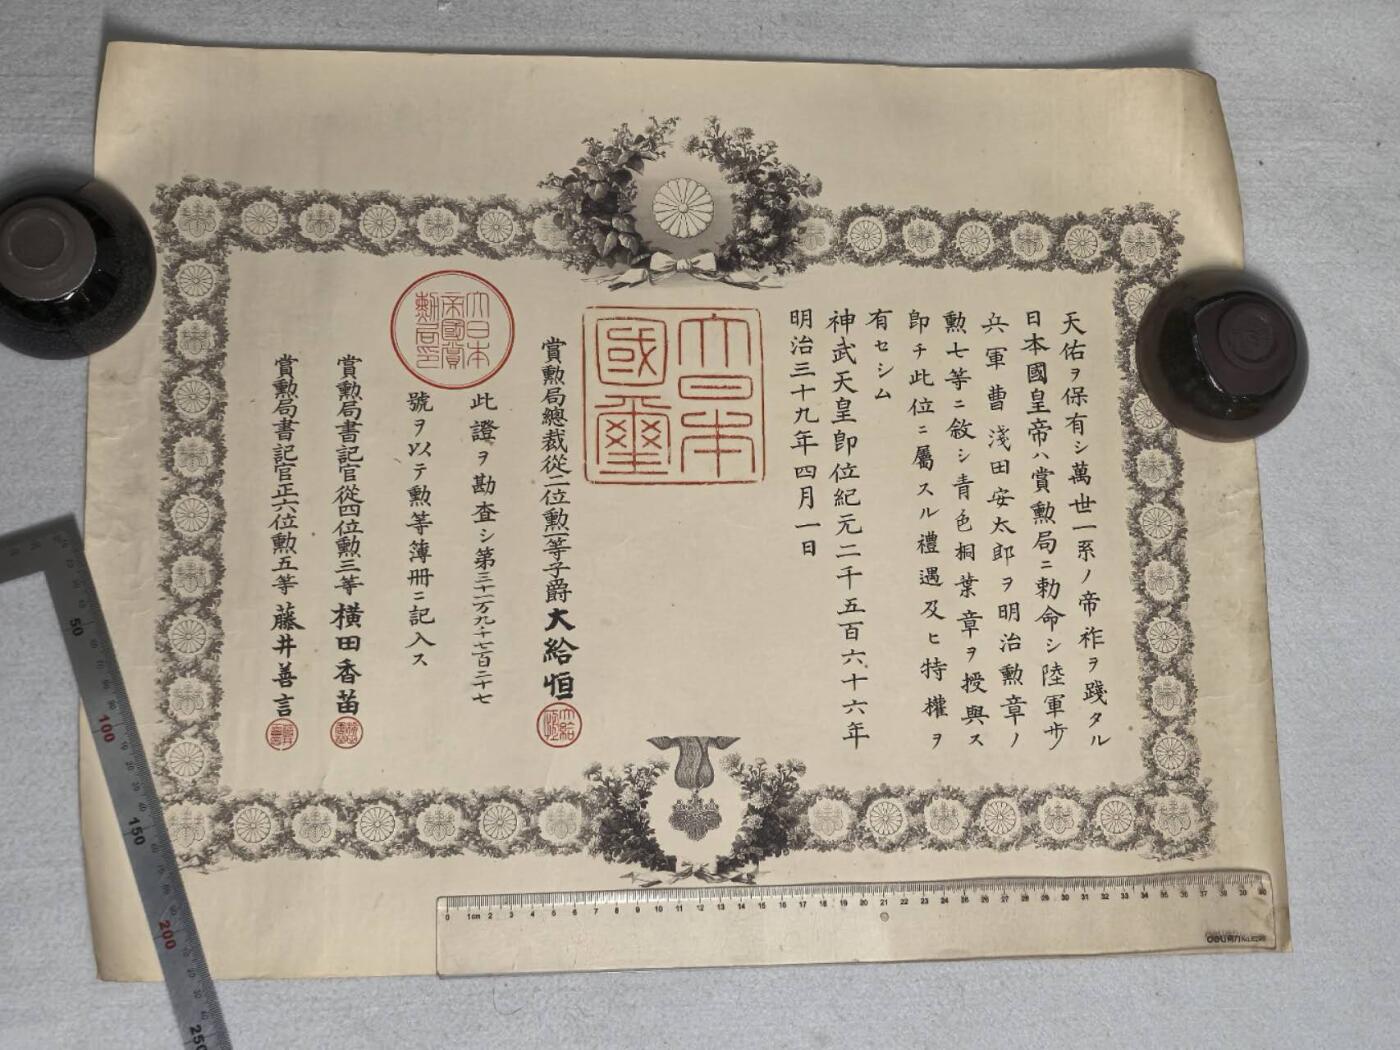 天佑ヲ保有シ萬世一系ノ帝祚ヲ踐タル
日本國皇帝ハ賞勲局ニ勅命シ陸軍歩
兵軍曹淺田安太郎ヲ明治勲章ノ
勲七等ニ敘シ青色桐葉章ヲ授與ス
即チ此位ニ屬スル禮遇及ヒ特權ヲ
有セシム
神武天皇即位紀元二千五百六十六年
明治三十九年四月一日
大日本
國璽
賞勲局總裁從二位勲一等子爵大給恒
大日本
帝國賞
勲局印
此證ヲ勘査シ第三十一万九千七百二十七
號ヲ以テ勲等簿冊ニ記入ス
賞勲局書記官從四位勲三等橫田香苗
賞勲局書記官正六位勲五等藤井善言
50
100
150
200
250
0 1cm 2 3 4 5 6 7 8 9 10 11 12 13 14 15 16 17 18 19 20 21 22 23 24 25 26 27 28 29 30 31 32 33 34 35 36 37 38 39 40